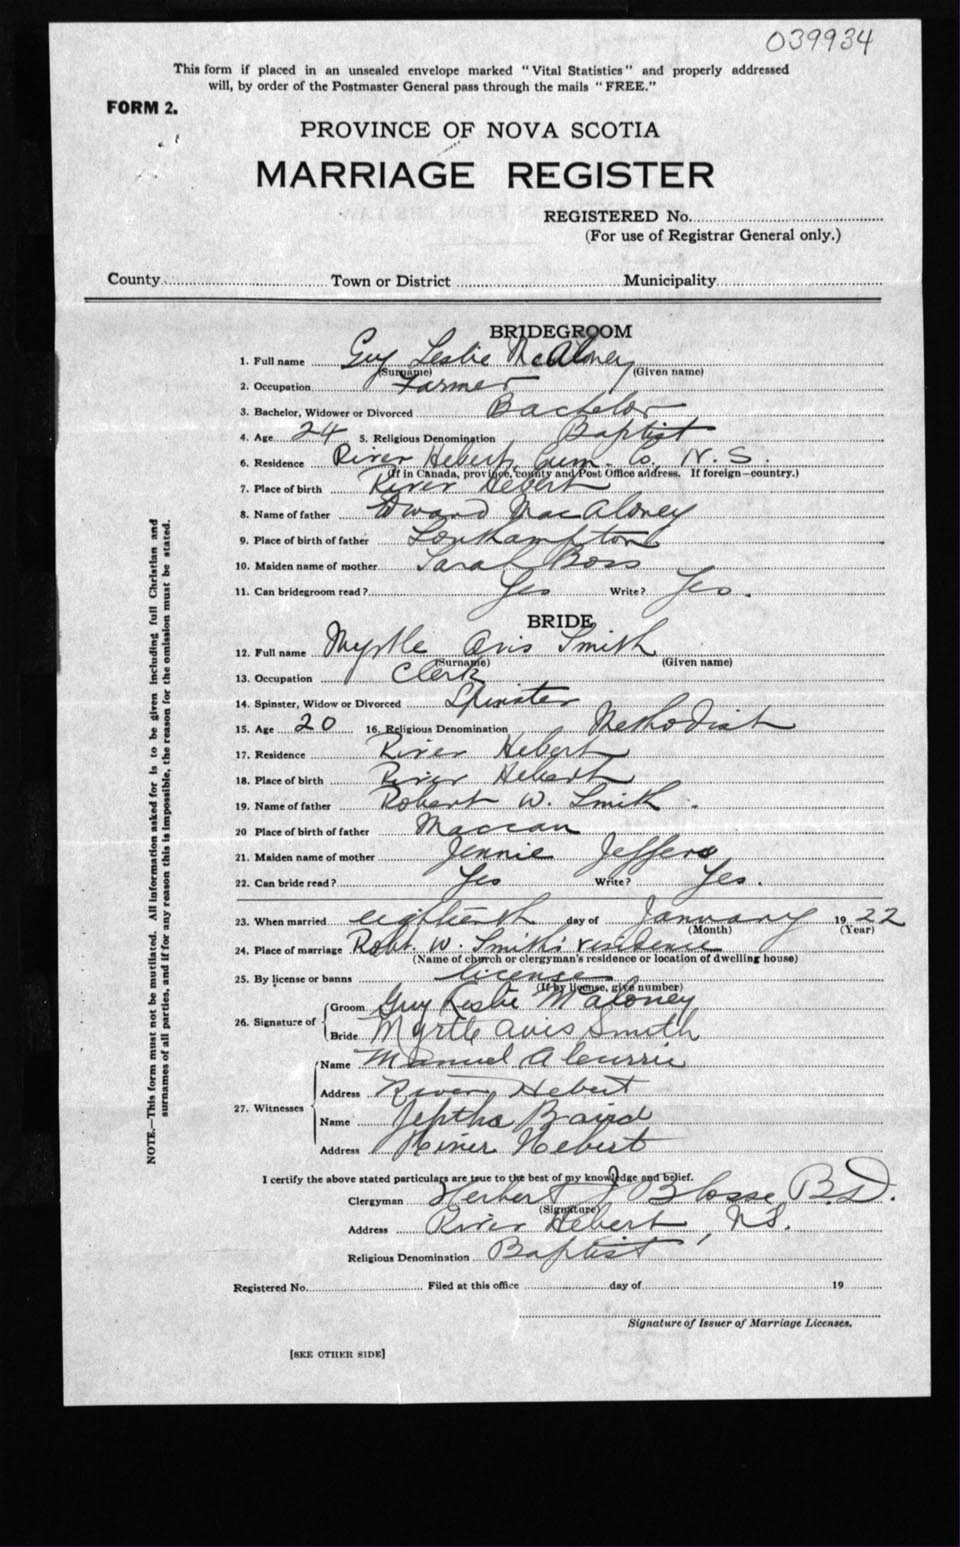 039934
This form if placed in an unsealed envelope marked "Vital Statistics" and properly addressed
will, by order of the Postmaster General pass through the mails "FREE."
FORM 2.
PROVINCE OF NOVA SCOTIA
MARRIAGE REGISTER
REGISTERED No.
(For use of Registrar General only.)
County Town or District Municipality
BRIDEGROOM
1. Full name Guy Leslie McAloney
(Surname) (Given name)
2. Occupation Farmer
3. Bachelor, Widower or Divorced Bachelor
4. Age 24 5. Religious Denomination Baptist
6. Residence River Hebert, Cum. Co, N.S.
(If in Canada, province, county and Post Office address. If foreign—country.)
7. Place of birth River Hebert
8. Name of father MacAloney
9. Place of birth of father
10. Maiden name of mother Sarah Boss
11. Can bridegroom read? Yes Write? Yes.
BRIDE
12. Full name Myrtle Avis Smith
(Surname) (Given name)
13. Occupation Clerk
14. Spinster, Widow or Divorced Spinster
15. Age 20 16. Religious Denomination Methodist
17. Residence River Hebert
18. Place of birth River Hebert
19. Name of father Robert W. Smith.
20 Place of birth of father Maccan
21. Maiden name of mother Jennie Jeffers
22. Can bride read? Yes Write? Yes.
23. When married day of January 1922
(Month) (Year)
24. Place of marriage Robt. W. Smith's residence
(Name of church or clergyman's residence or location of dwelling house)
25. By license or banns license
(If by license, give number)
26. Signature of Groom Guy Leslie Maloney
Bride Myrtle Avis Smith
27. Witnesses Name Manuel A Currie
Address River Hebert
Name Jeptha Baird
Address River Hebert
I certify the above stated particulars are true to the best of my knowledge and belief.
Clergyman Herbert J Blosse B.D.
(Signature)
Address River Hebert, N.S.
Religious Denomination Baptist
Registered No. Filed at this office day of 19
Signature of Issuer of Marriage Licenses.
[SEE OTHER SIDE]
NOTE.—This form must not be mutilated. All information asked for is to be given including full Christian and
surnames of all parties, and if for any reason this is impossible, the reason for the omission must be stated.